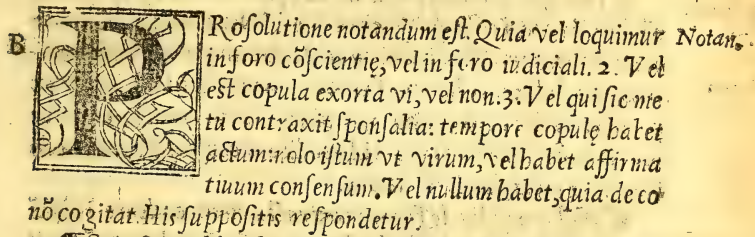 B PRoſolutione notandum eſt. Quia vel loquimur Notan.
in foro cõſcientię, vel in foro iudiciali. 2. Vel
eſt copula exorta vi, vel non. 3. Vel qui ſic me
tu contraxit ſponſalia: tempore copulę habet
actum: nolo iſtum vt virum, vel habet affirma
tiuum conſenſum. Vel nullum habet, quia de eo
nõ cogitat. His ſuppoſitis reſpondetur.